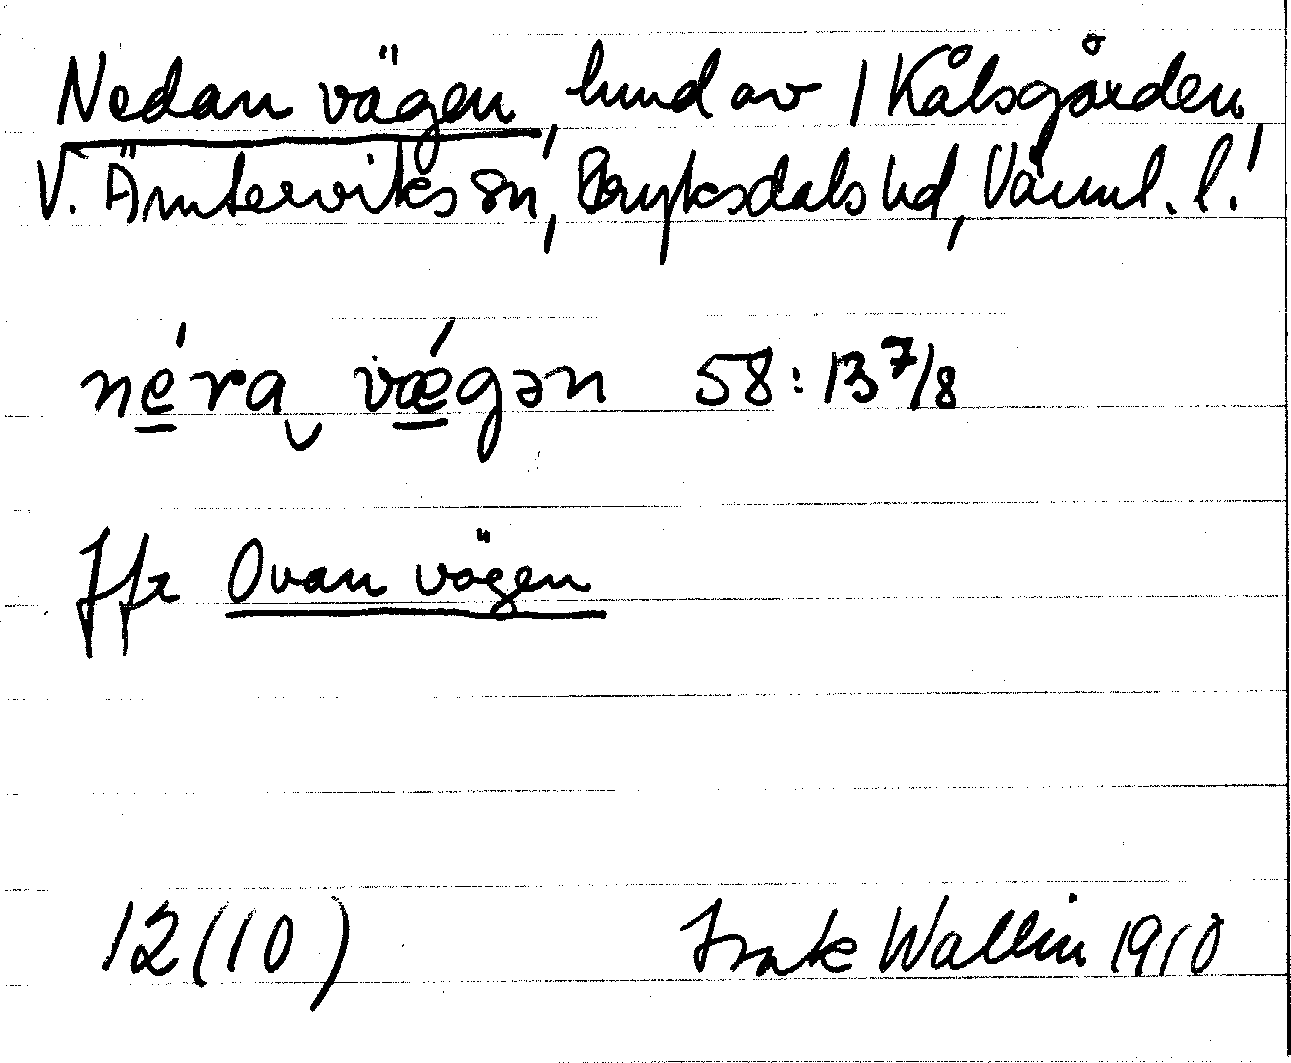 Nedan vägen, lund av 1 Kålsgården
V. Ämterviks sn, Fryksdals hd, Värml. l.!
néra vǽgən 58:13 7/8
Jfr Ovan vägen
12(10) Isak Wallin 1910